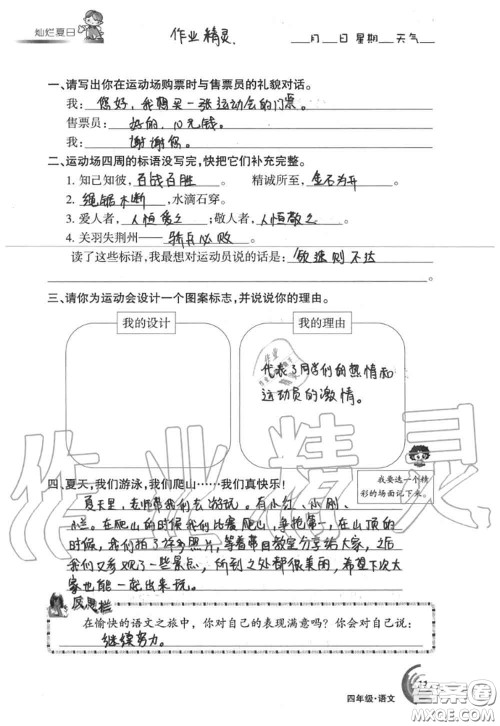 灿烂夏日
作业精灵.
月 日 星期 天气
一、请写出你在运动场购票时与售票员的礼貌对话。
我：您好，我购买一张运动会的门票。
售票员：好的，10元钱。
我：谢谢您。
二、运动场四周的标语没写完，快把它们补充完整。
1. 知己知彼，百战百胜。 精诚所至，金石为开
2. 绳锯木断，水滴石穿。
3. 爱人者，人恒爱之；敬人者，人恒敬之。
4. 关羽失荆州——骄兵必败。
读了这些标语，我最想对运动员说的话是：欲速则不达
三、请你为运动会设计一个图案标志，并说说你的理由。
我的设计
我的理由
代表了同学们的热情和
运动员的激情。
作业精灵
我要选一个精
彩的场面记下来。
四、夏天，我们游泳，我们爬山……我们真快乐！
夏天里，老师带我们去游玩。有小红、小刚、
小兰。在爬山的时候我们比赛爬山，争抢第一，在山顶的
时候，我们拍了许多照片，等着带回教室分享给大家，之后
我们又参观了一些景点，所到之处都很美丽，希望下次大
家也能一起出来玩。
反思栏
在愉快的语文之旅中，你对自己的表现满意吗？你会对自己说：
继续努力。
四年级·语文
答案圈
MXQE.COM